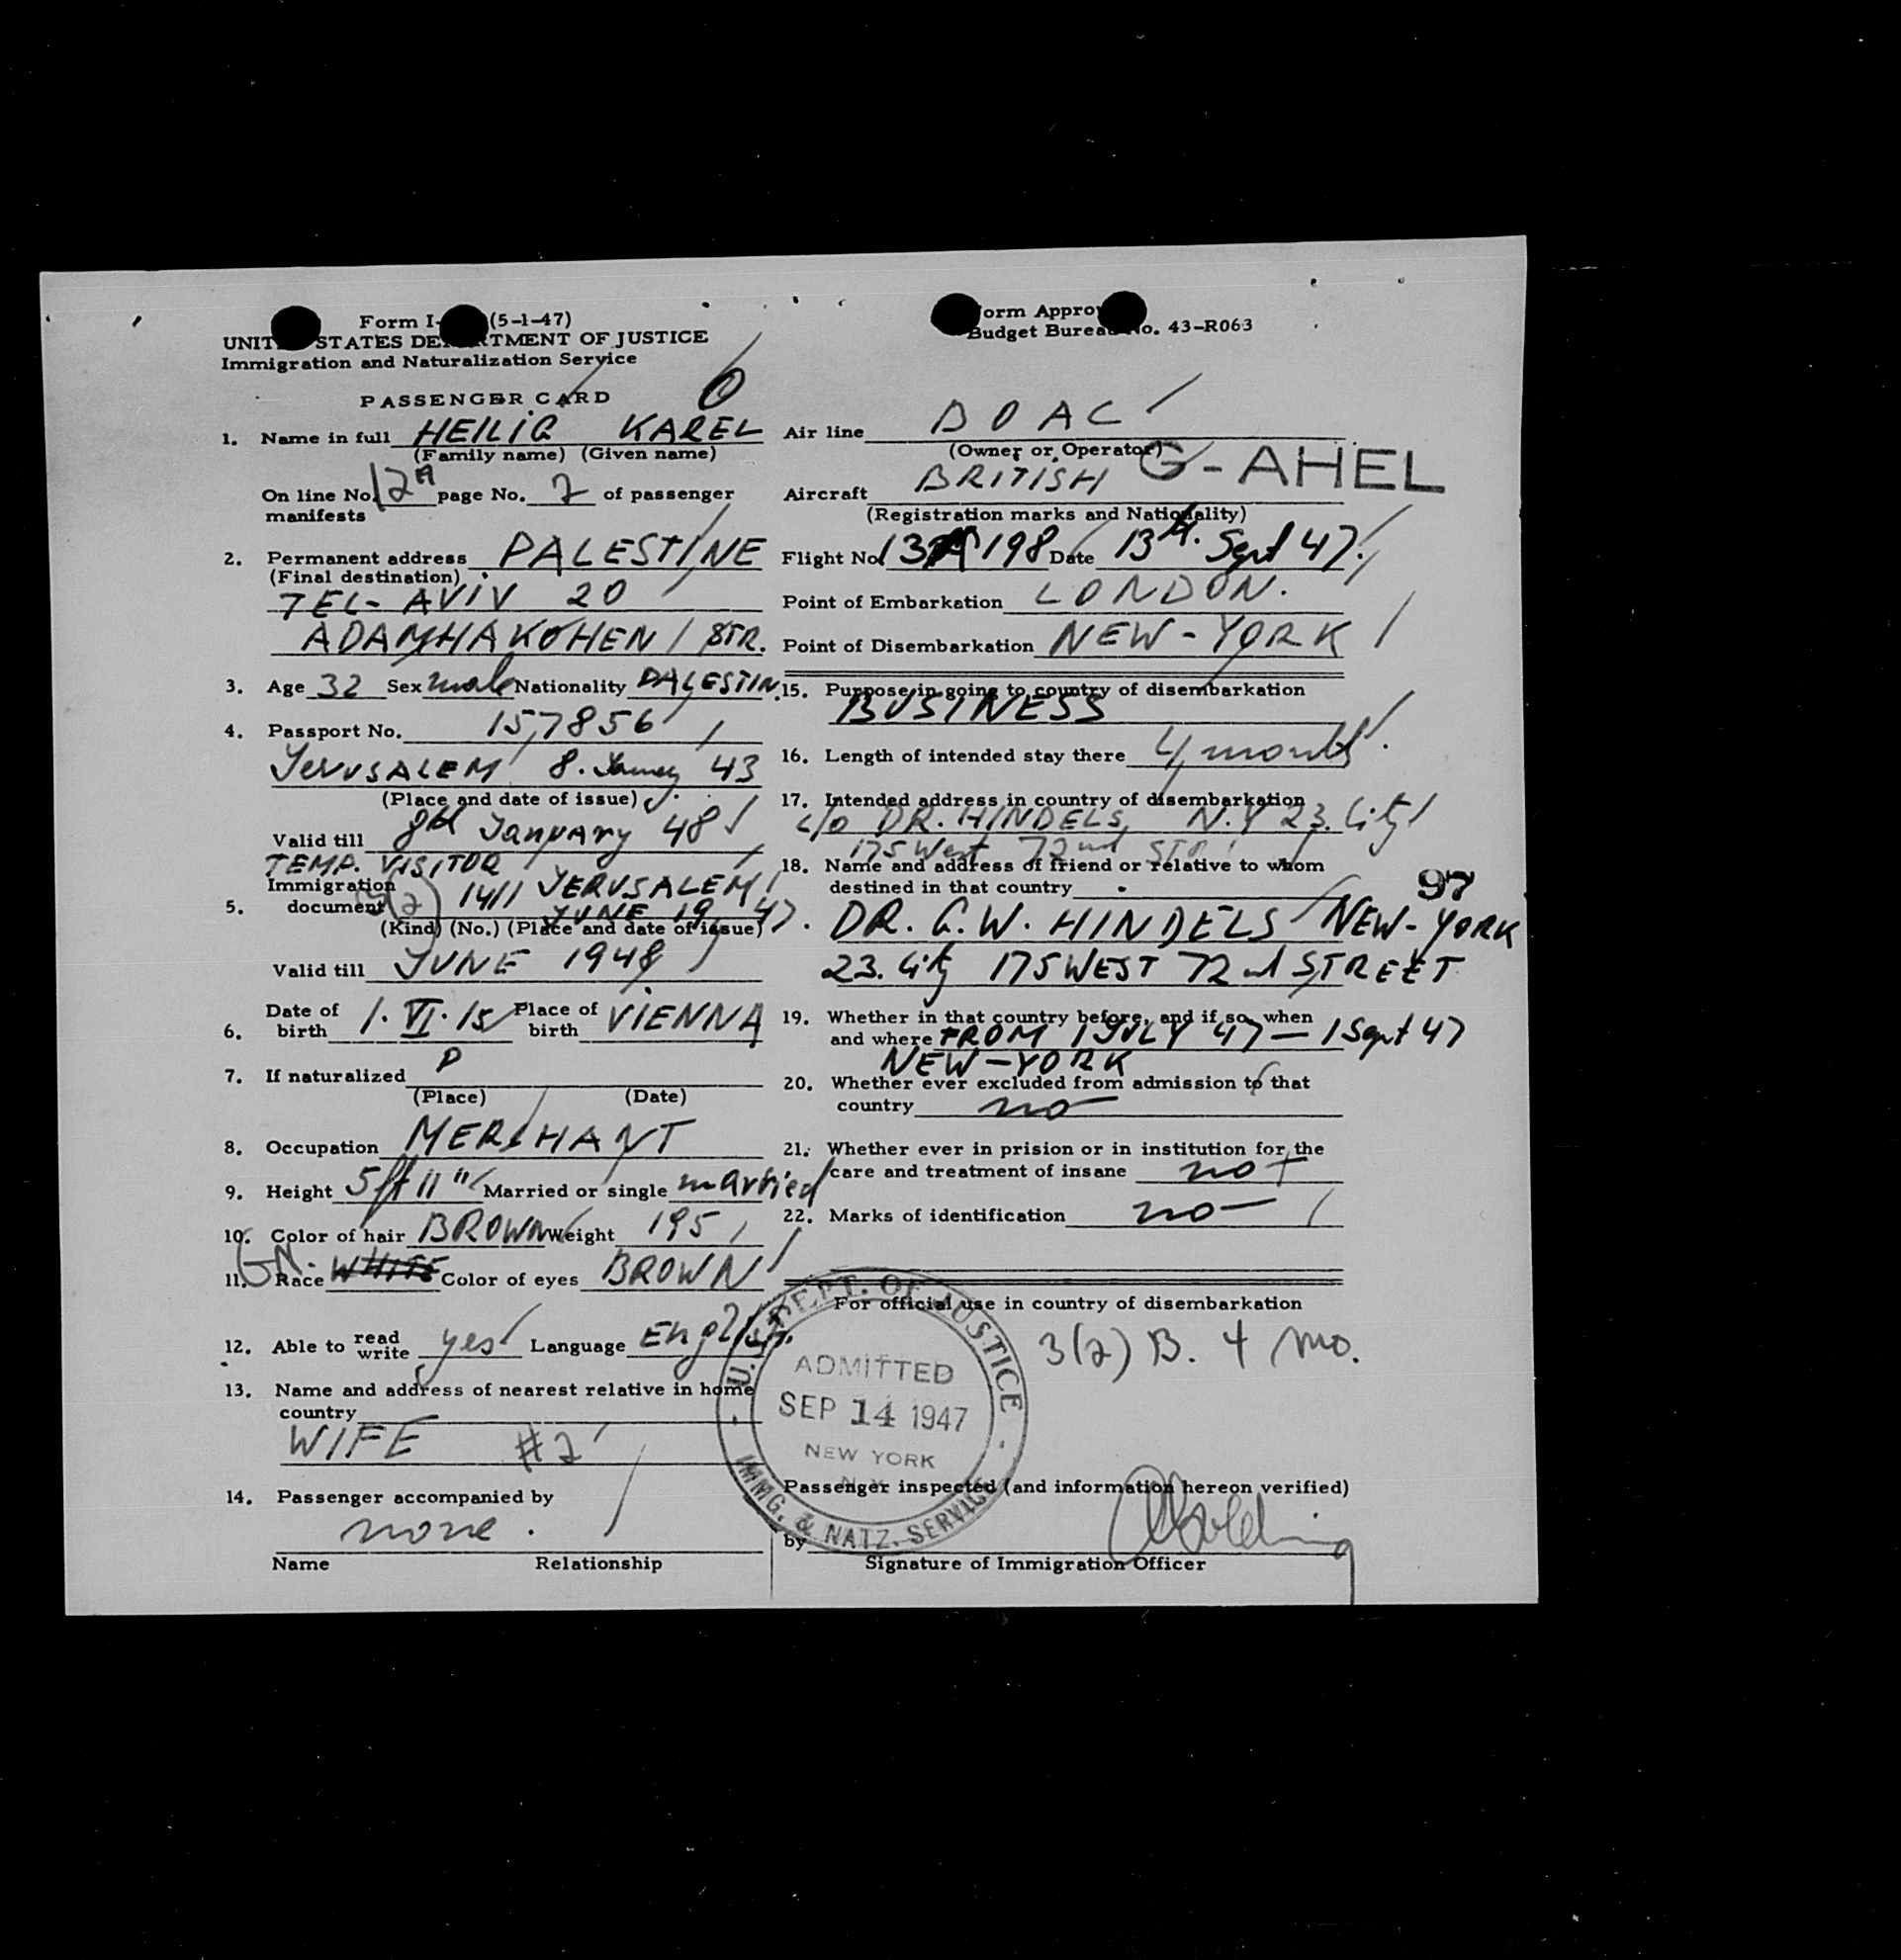 Form I- (5-1-47)
UNIT STATES DE RTMENT OF JUSTICE
Immigration and Naturalization Service
PASSENGER CARD
orm Appro
Budget Burea No. 43-R063
1. Name in full HEILIG KAREL
(Family name) (Given name)
On line No. 12A page No. 2 of passenger
manifests
2. Permanent address PALESTINE
(Final destination)
TEL-AVIV 20
ADAMHAKOHEN STR.
3. Age 32 Sex male Nationality PALESTIN.
4. Passport No. 157856
JERUSALEM 8. 43
(Place and date of issue)
Valid till January 48
TEMP. VISITOR
Immigration
5. document 3(2) 1411 JERUSALEM
JUNE 19, 47.
(Kind) (No.) (Place and date of issue)
Valid till JUNE 1948
6. Date of birth 1. VI. 15 Place of birth VIENNA
7. If naturalized
(Place) (Date)
8. Occupation MERCHANT
9. Height 5 ft 11" Married or single married
10. Color of hair BROWN Weight 195
11. Race WHITE Color of eyes BROWN
12. Able to read write yes Language English
13. Name and address of nearest relative in home
country
WIFE #2
14. Passenger accompanied by
none.
Name Relationship
Air line BOAC
(Owner or Operator)
G-AHEL
Aircraft BRITISH
(Registration marks and Nationality)
Flight No. 198 Date 13th. Sept 47.
Point of Embarkation LONDON.
Point of Disembarkation NEW-YORK
15. Purpose in going to country of disembarkation
BUSINESS
16. Length of intended stay there 4 months.
17. Intended address in country of disembarkation
c/o DR. HINDELS, N.Y 23. City
175 West 72nd STR
18. Name and address of friend or relative to whom
destined in that country
97
DR. G.W. HINDELS NEW-YORK
23. City 175 WEST 72nd STREET
19. Whether in that country before, and if so, when
and where FROM 1 JULY 47 - 1 Sept 47
NEW-YORK
20. Whether ever excluded from admission to that
country no
21. Whether ever in prision or in institution for the
care and treatment of insane no
22. Marks of identification no
For official use in country of disembarkation
3(2) B. 4 mo.
U.S. DEPT. OF JUSTICE
ADMITTED
SEP 14 1947
NEW YORK
N.Y.
IMMG. & NATZ. SERVICE
Passenger inspected (and information hereon verified)
by
Signature of Immigration Officer